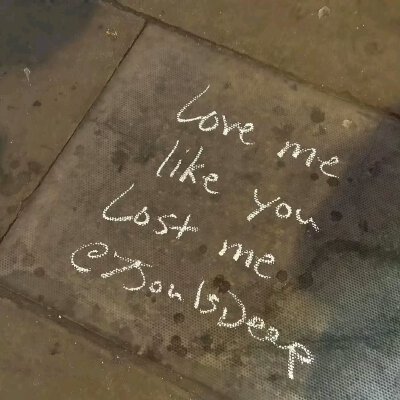 Love me
like you
Lost me
@JSoulsDeep